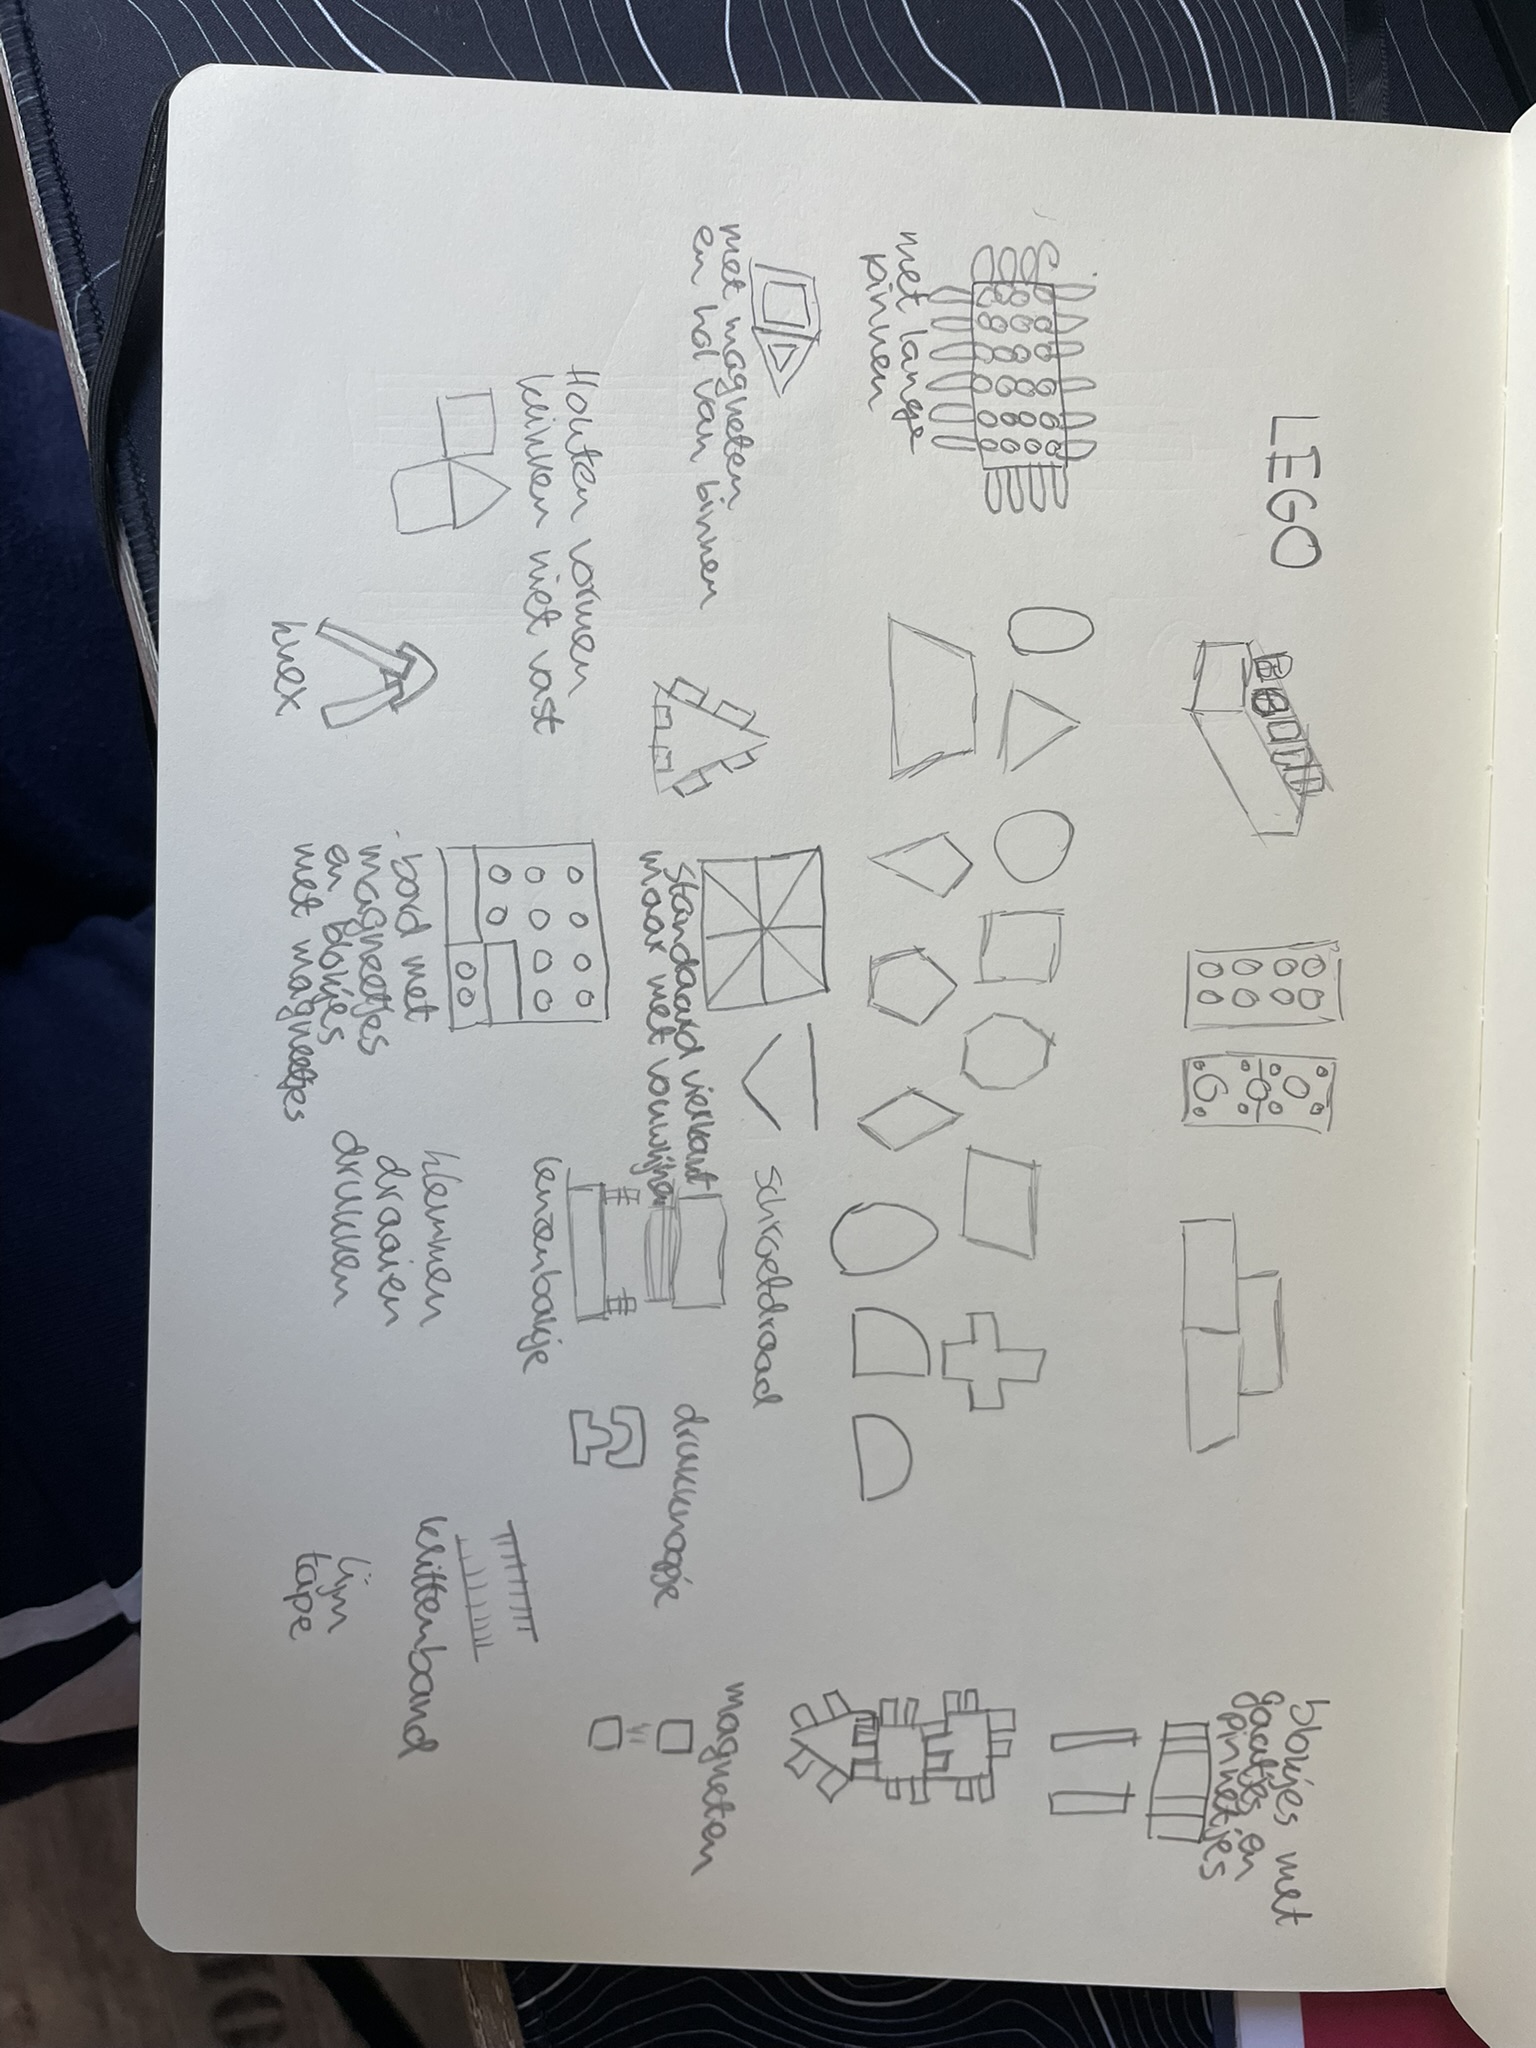 LEGO
blokjes met
gaatjes en
pinnetjes
met lange
pinnen
met magneten
en hol van binnen
standaard vierkant
maar met vouwlijnen
schroefdraad
lenzenbakje
drukknopje
magneten
Houten vormen
klikken niet vast
knex
bord met
magneetjes
en blokjes
met magneetjes
klemmen
draaien
drukken
klittenband
lijm
tape